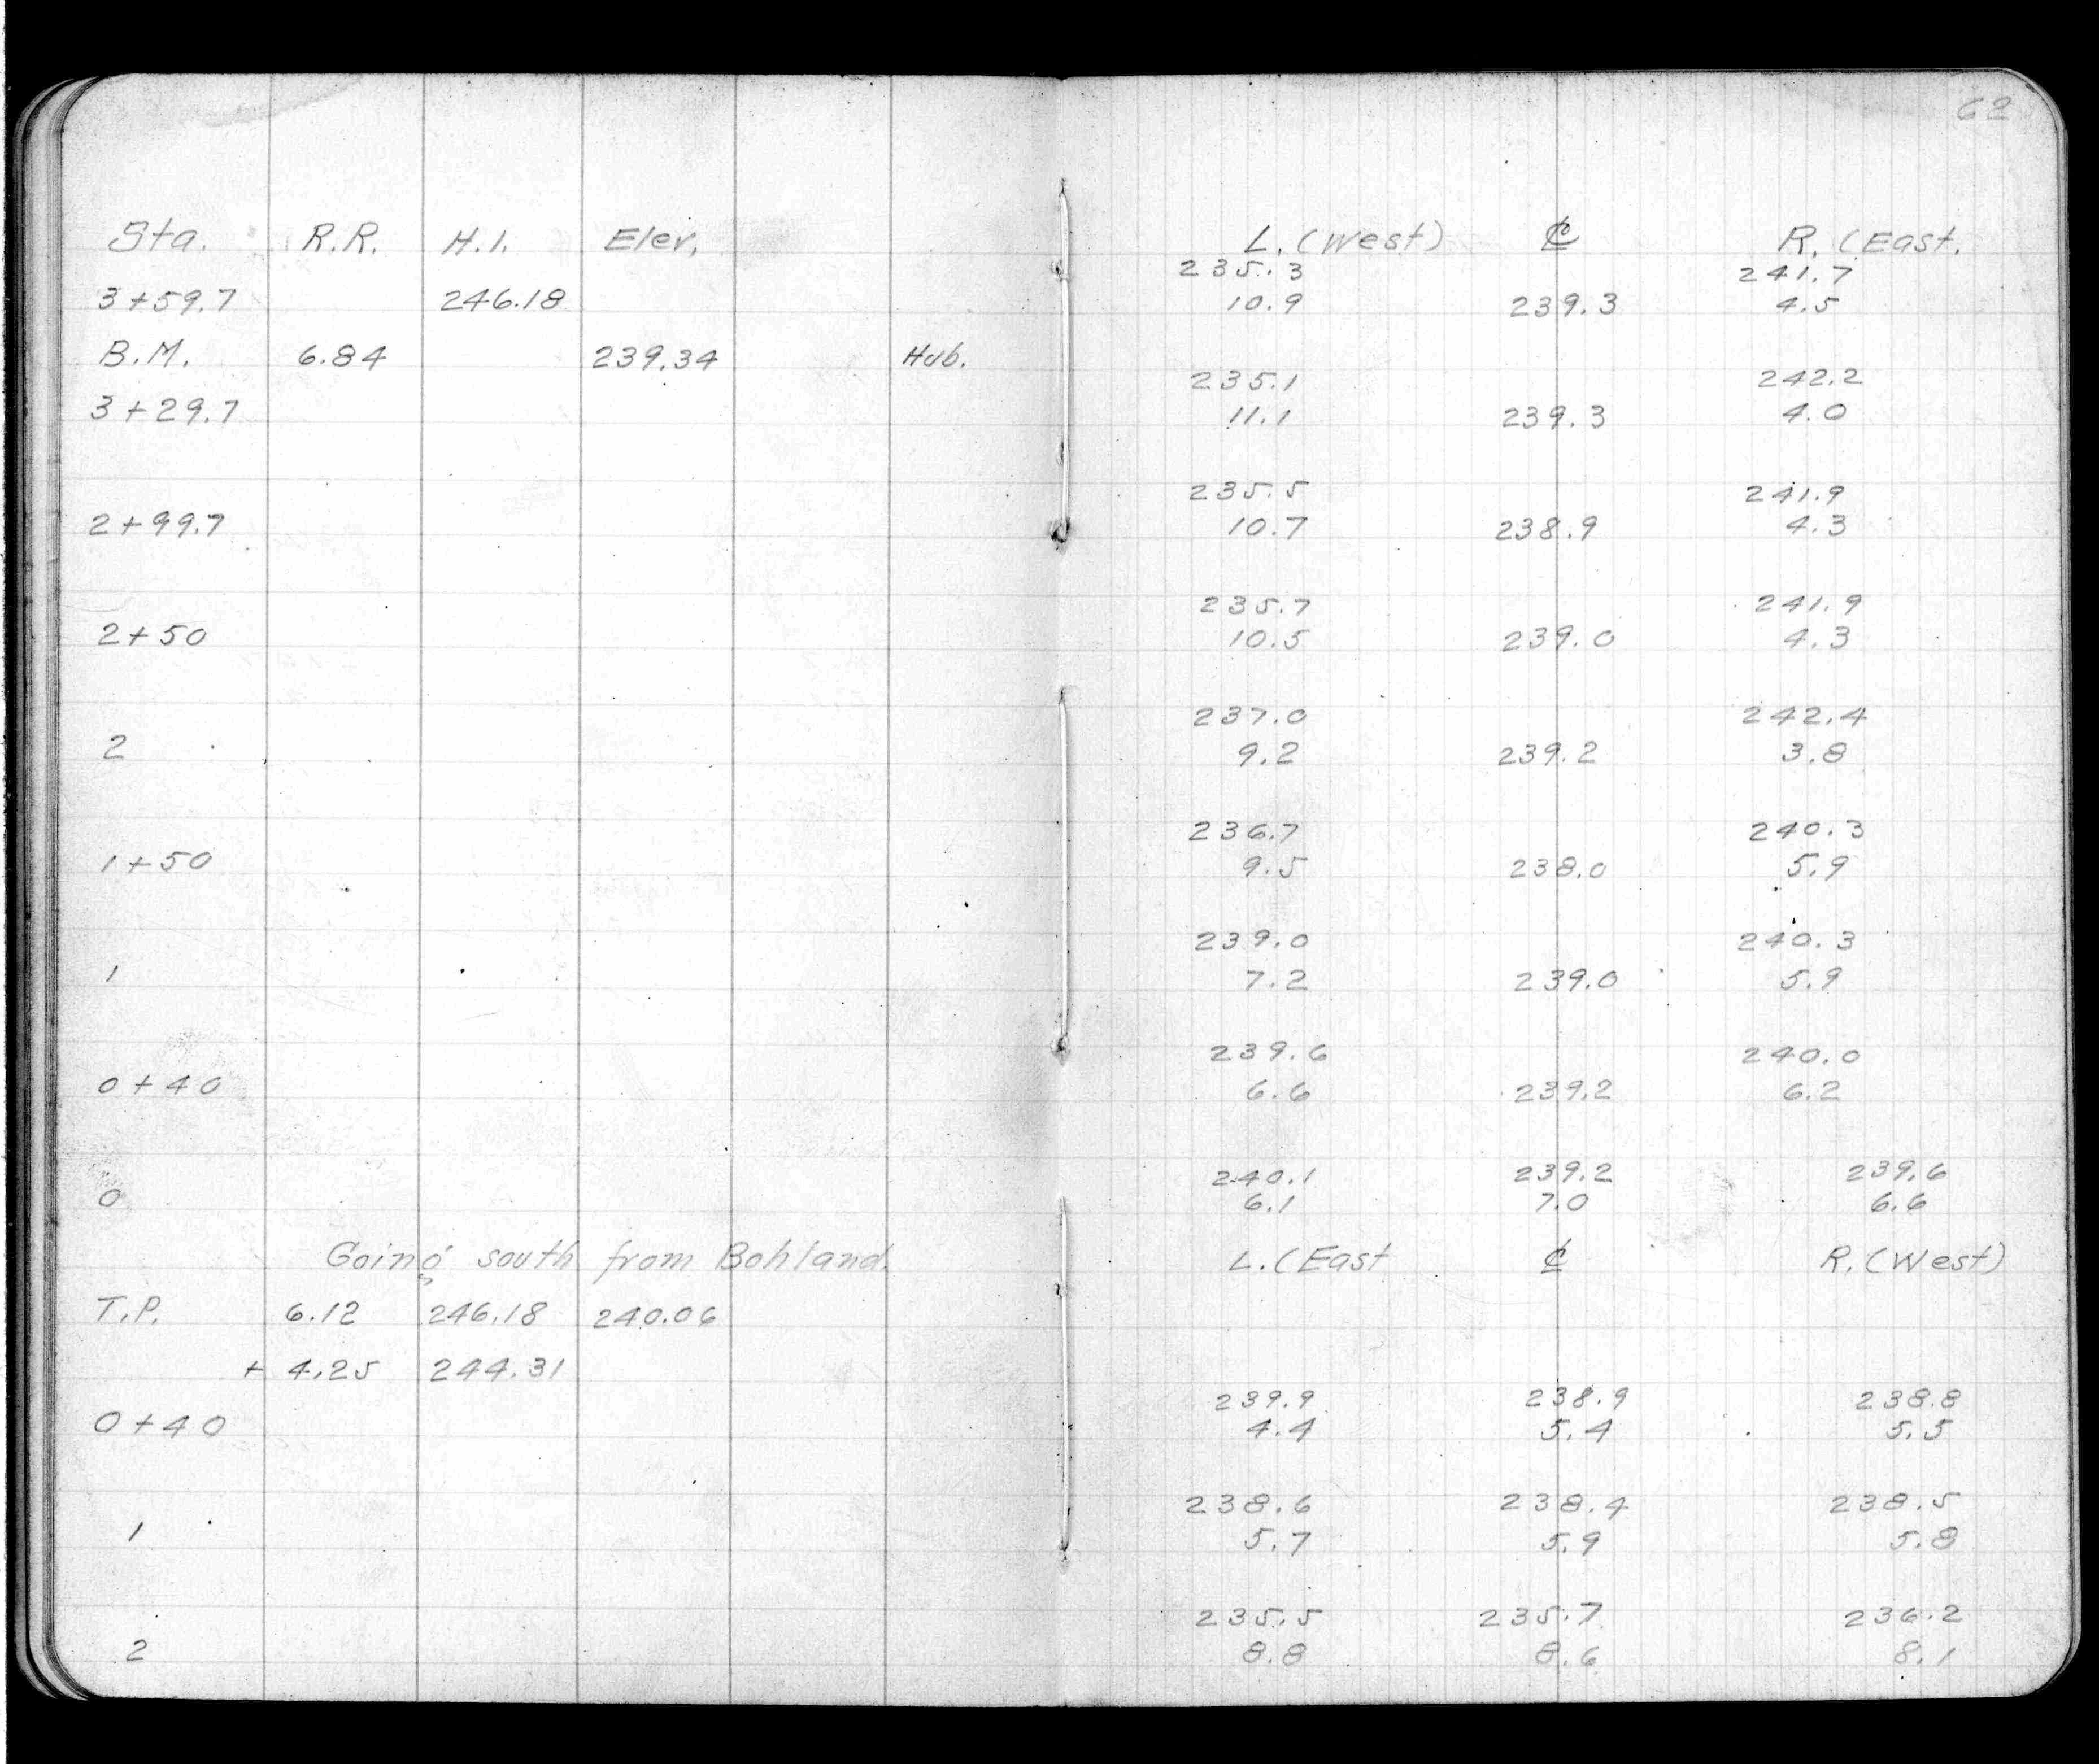 62
Sta. R.R. H.I. Elev. L. (West) ℄ R. (East.
235.3 241.7
3+59.7 246.18 10.9 239.3 4.5
B.M. 6.84 239.34 Hub.
235.1 242.2
3+29.7 11.1 239.3 4.0
235.5 241.9
2+99.7 10.7 238.9 4.3
235.7 241.9
2+50 10.5 239.0 4.3
237.0 242.4
2 9.2 239.2 3.8
236.7 240.3
1+50 9.5 238.0 5.9
239.0 240.3
1 7.2 239.0 5.9
239.6 240.0
0+40 6.6 239.2 6.2
240.1 239.2 239.6
0 6.1 7.0 6.6
Going south from Bohland. L. (East ℄ R. (West)
T.P. 6.12 246.18 240.06
+ 4.25 244.31
239.9 238.9 238.8
0+40 4.4 5.4 5.5
238.6 238.4 238.5
1 5.7 5.9 5.8
235.5 235.7 236.2
2 8.8 8.6 8.1